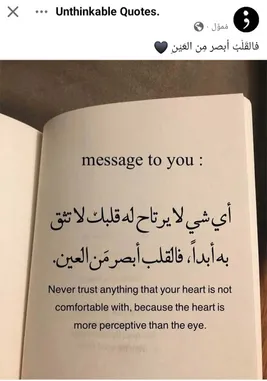 Unthinkable Quotes.
مُموّل
فالقَلْبُ أبصر مِن العَينِ 🖤
message to you :
أي شي لا يرتاح له قلبك لا تثق
به أبداً، فالقلب أبصر مَن العين.
Never trust anything that your heart is not
comfortable with, because the heart is
more perceptive than the eye.